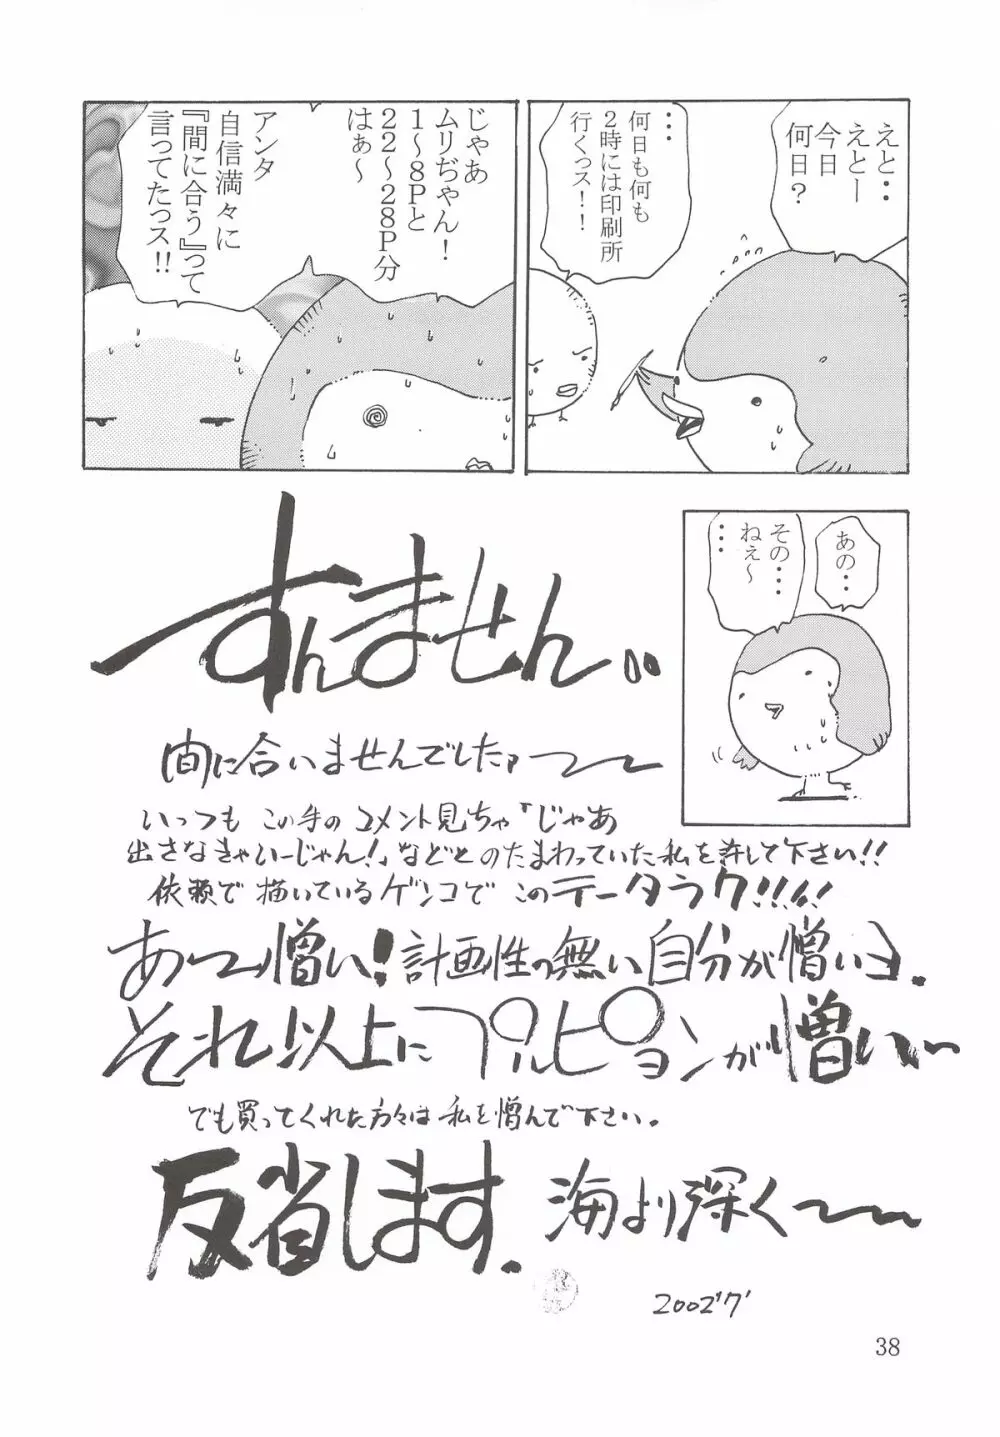 えと・・
えとー
今日
何日？
・・・
何日も何も
2時には印刷所
行くっス！！
じゃあ
ムリぢゃん！
1〜8Pと
22〜28P分
はぁ〜
アンタ
自信満々に
『間に合う』って
言ってたっス!!
あの・・
その・・・
ねぇ〜
・・・
すんません
間に合いませんでした〜
いつも この手のコメント見ちゃ「じゃあ
出さなきゃいーじゃん!」などとのたまわっていた私を許して下さい!!
依頼で描いているゲンコでこのテータラク!!!!
あ〜憎い!計画性の無い自分が憎いヨ.
それ以上にプルピョンが憎い〜
でも買ってくれた方々は私を憎んで下さい。
反省します. 海より深く〜
2002'7'
38